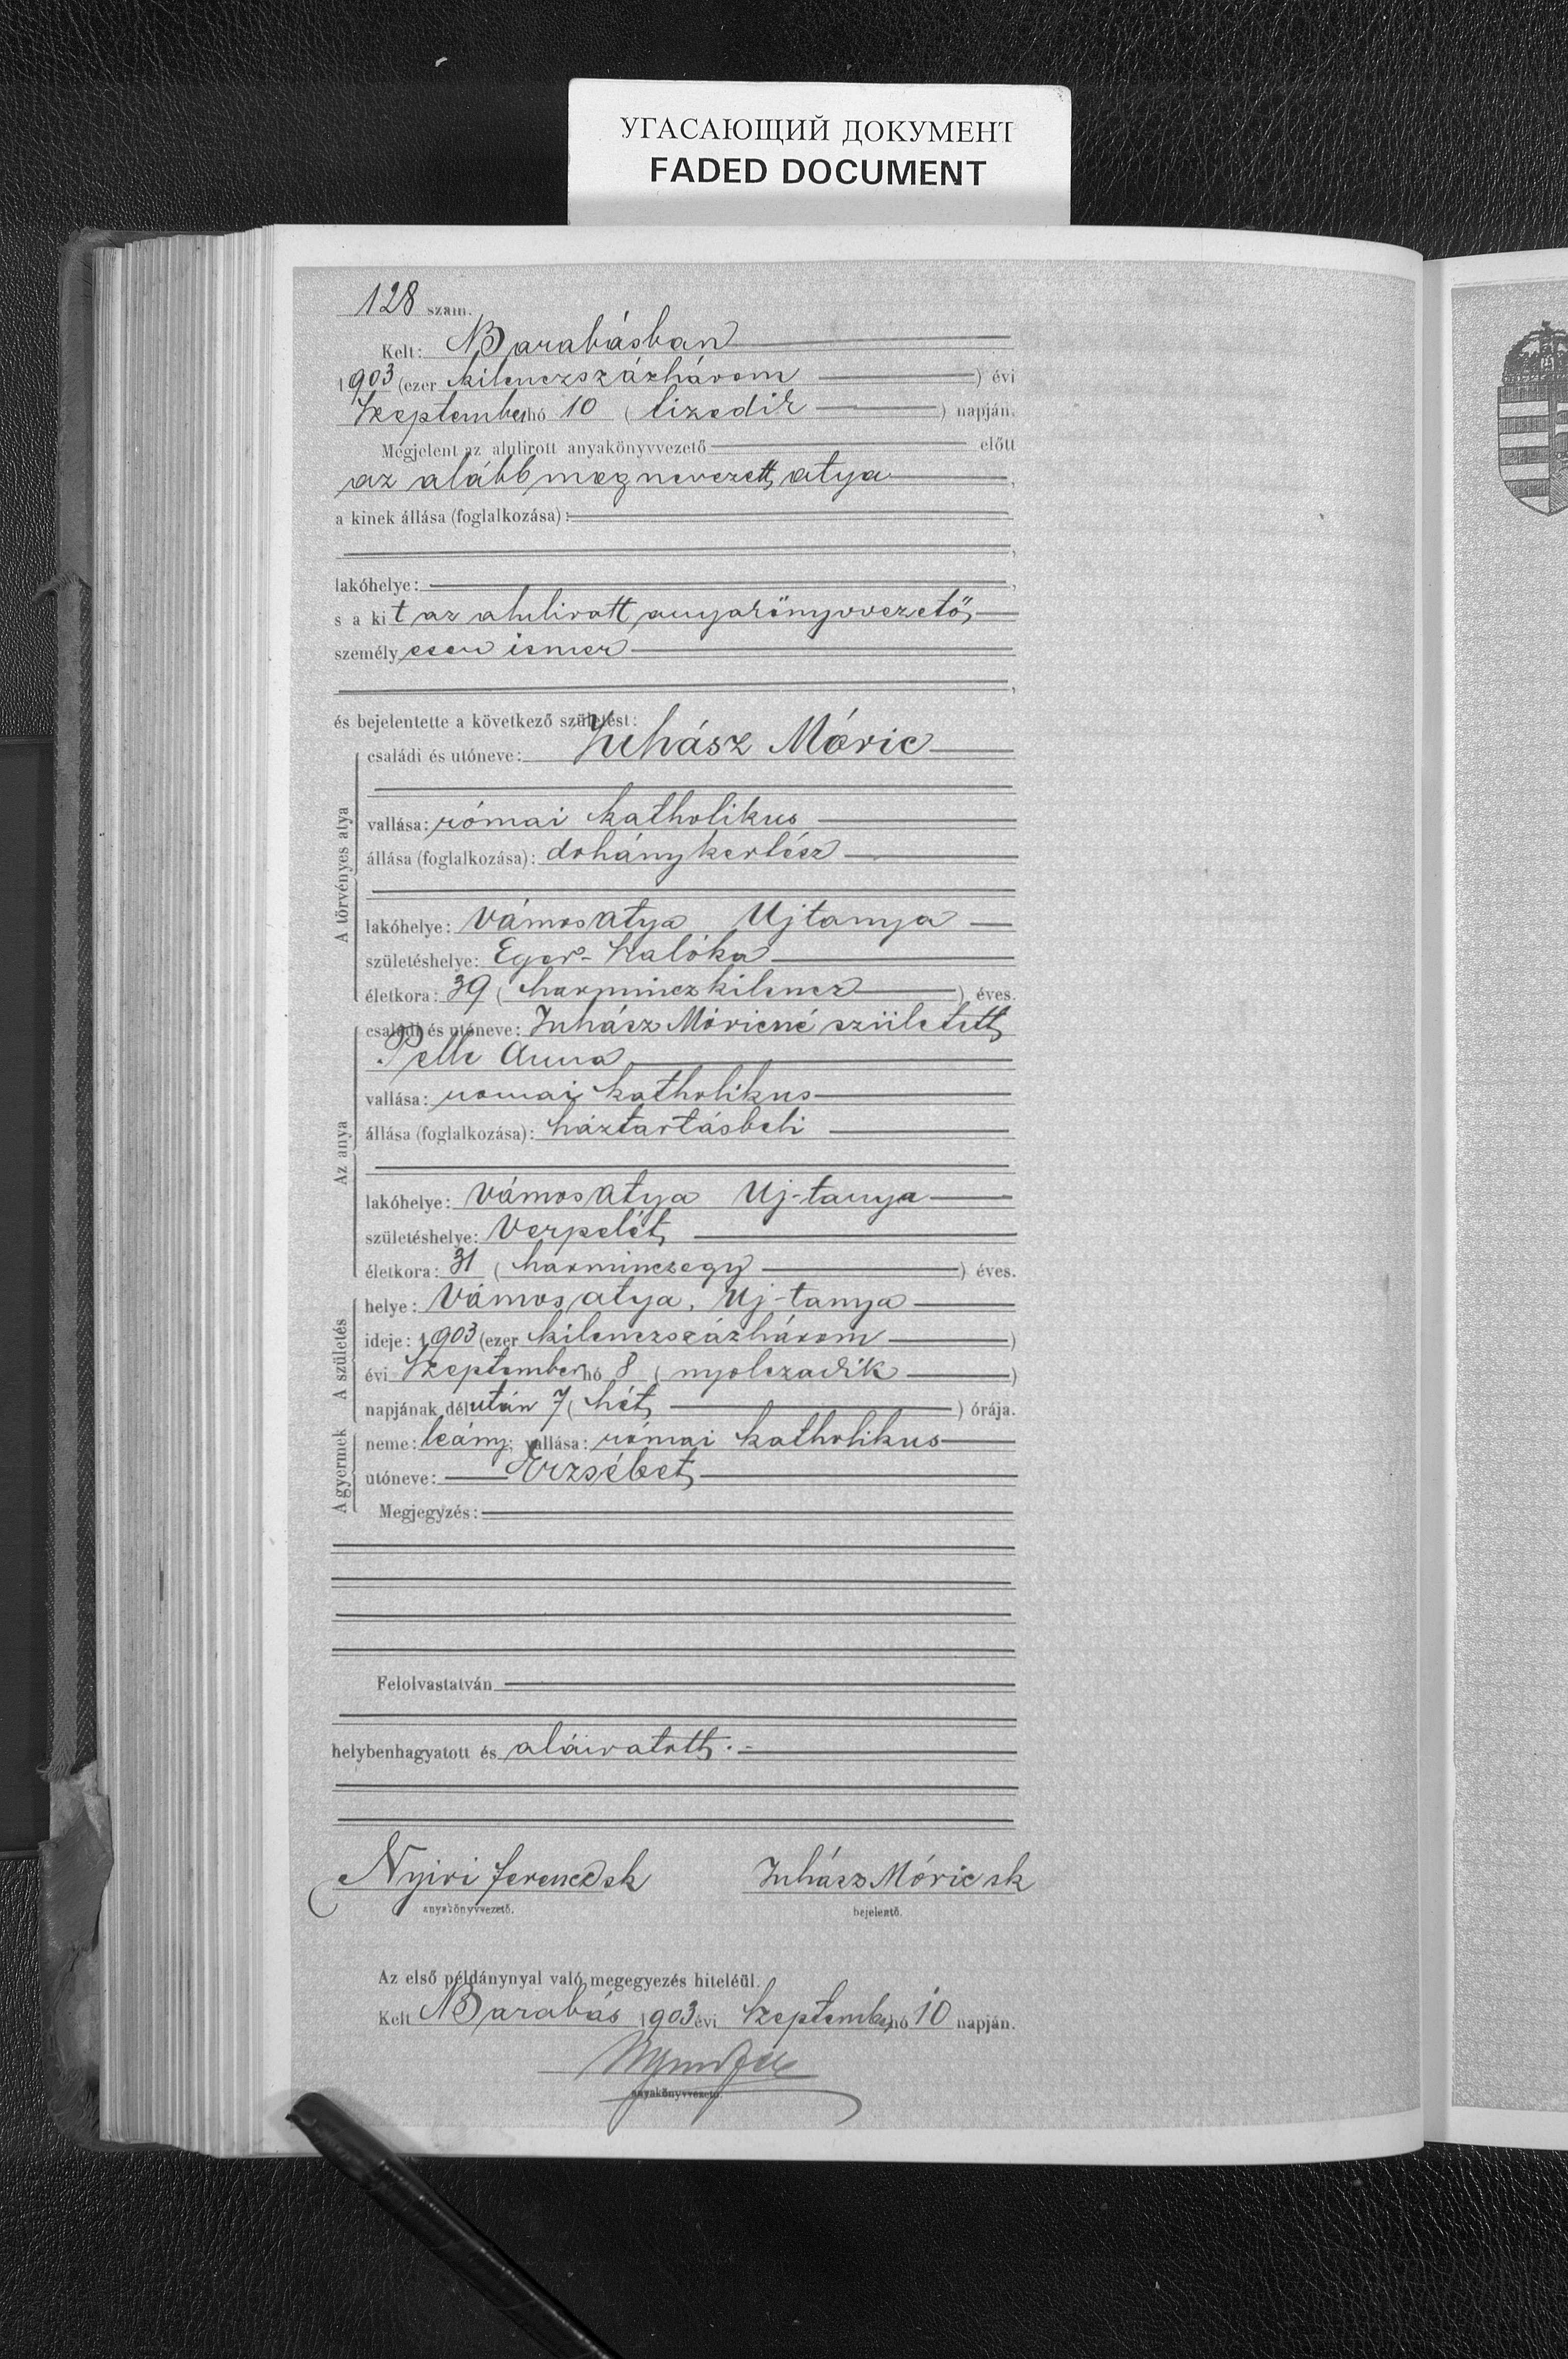 УГАСАЮЩИЙ ДОКУМЕНТ
FADED DOCUMENT
128 szám.
Kelt: Barabásban
1903 (ezer kilenczszázhárom) évi
Szeptember hó 10 (tizedik) napján.
Megjelent az alulirott anyakönyvvezető előtt
az alább megnevezett atya,
a kinek állása (foglalkozása):
,
lakóhelye: ,
s a kit az alulirott anyakönyvvezető
személyesen ismer
,
és bejelentette a következő születést:
A törvényes atya
családi és utóneve: Juhász Móric
vallása: római katholikus
állása (foglalkozása): dohánykertész
lakóhelye: Vámosatya Ujtanya
születéshelye: Eger-Szalóka
életkora: 39 (harminczkilencz) éves.
Az anya
családi és utóneve: Juhász Móricné született
Pelle Anna
vallása: romai katholikus
állása (foglalkozása): háztartásbeli
lakóhelye: Vámosatya Uj-tanya
születéshelye: Verpelét
életkora: 31 (harminczegy) éves.
A születés
helye: Vámosatya, Uj-tanya
ideje: 1903 (ezer kilenczszázhárom)
évi Szeptember hó 8 (nyolczadik)
napjának délután 7 (hét) órája.
A gyermek
neme: leány; vallása: római katholikus
utóneve: Erzsébet
Megjegyzés:
Felolvastatván
helybenhagyatott és aláiratott.-
Nyiri Ferencz sk Juhász Móric sk
anyakönyvvezető. bejelentő.
Az első példánynyal való megegyezés hiteléül.
Kelt Barabás 1903 évi Szeptember hó 10 napján.
anyakönyvvezető.